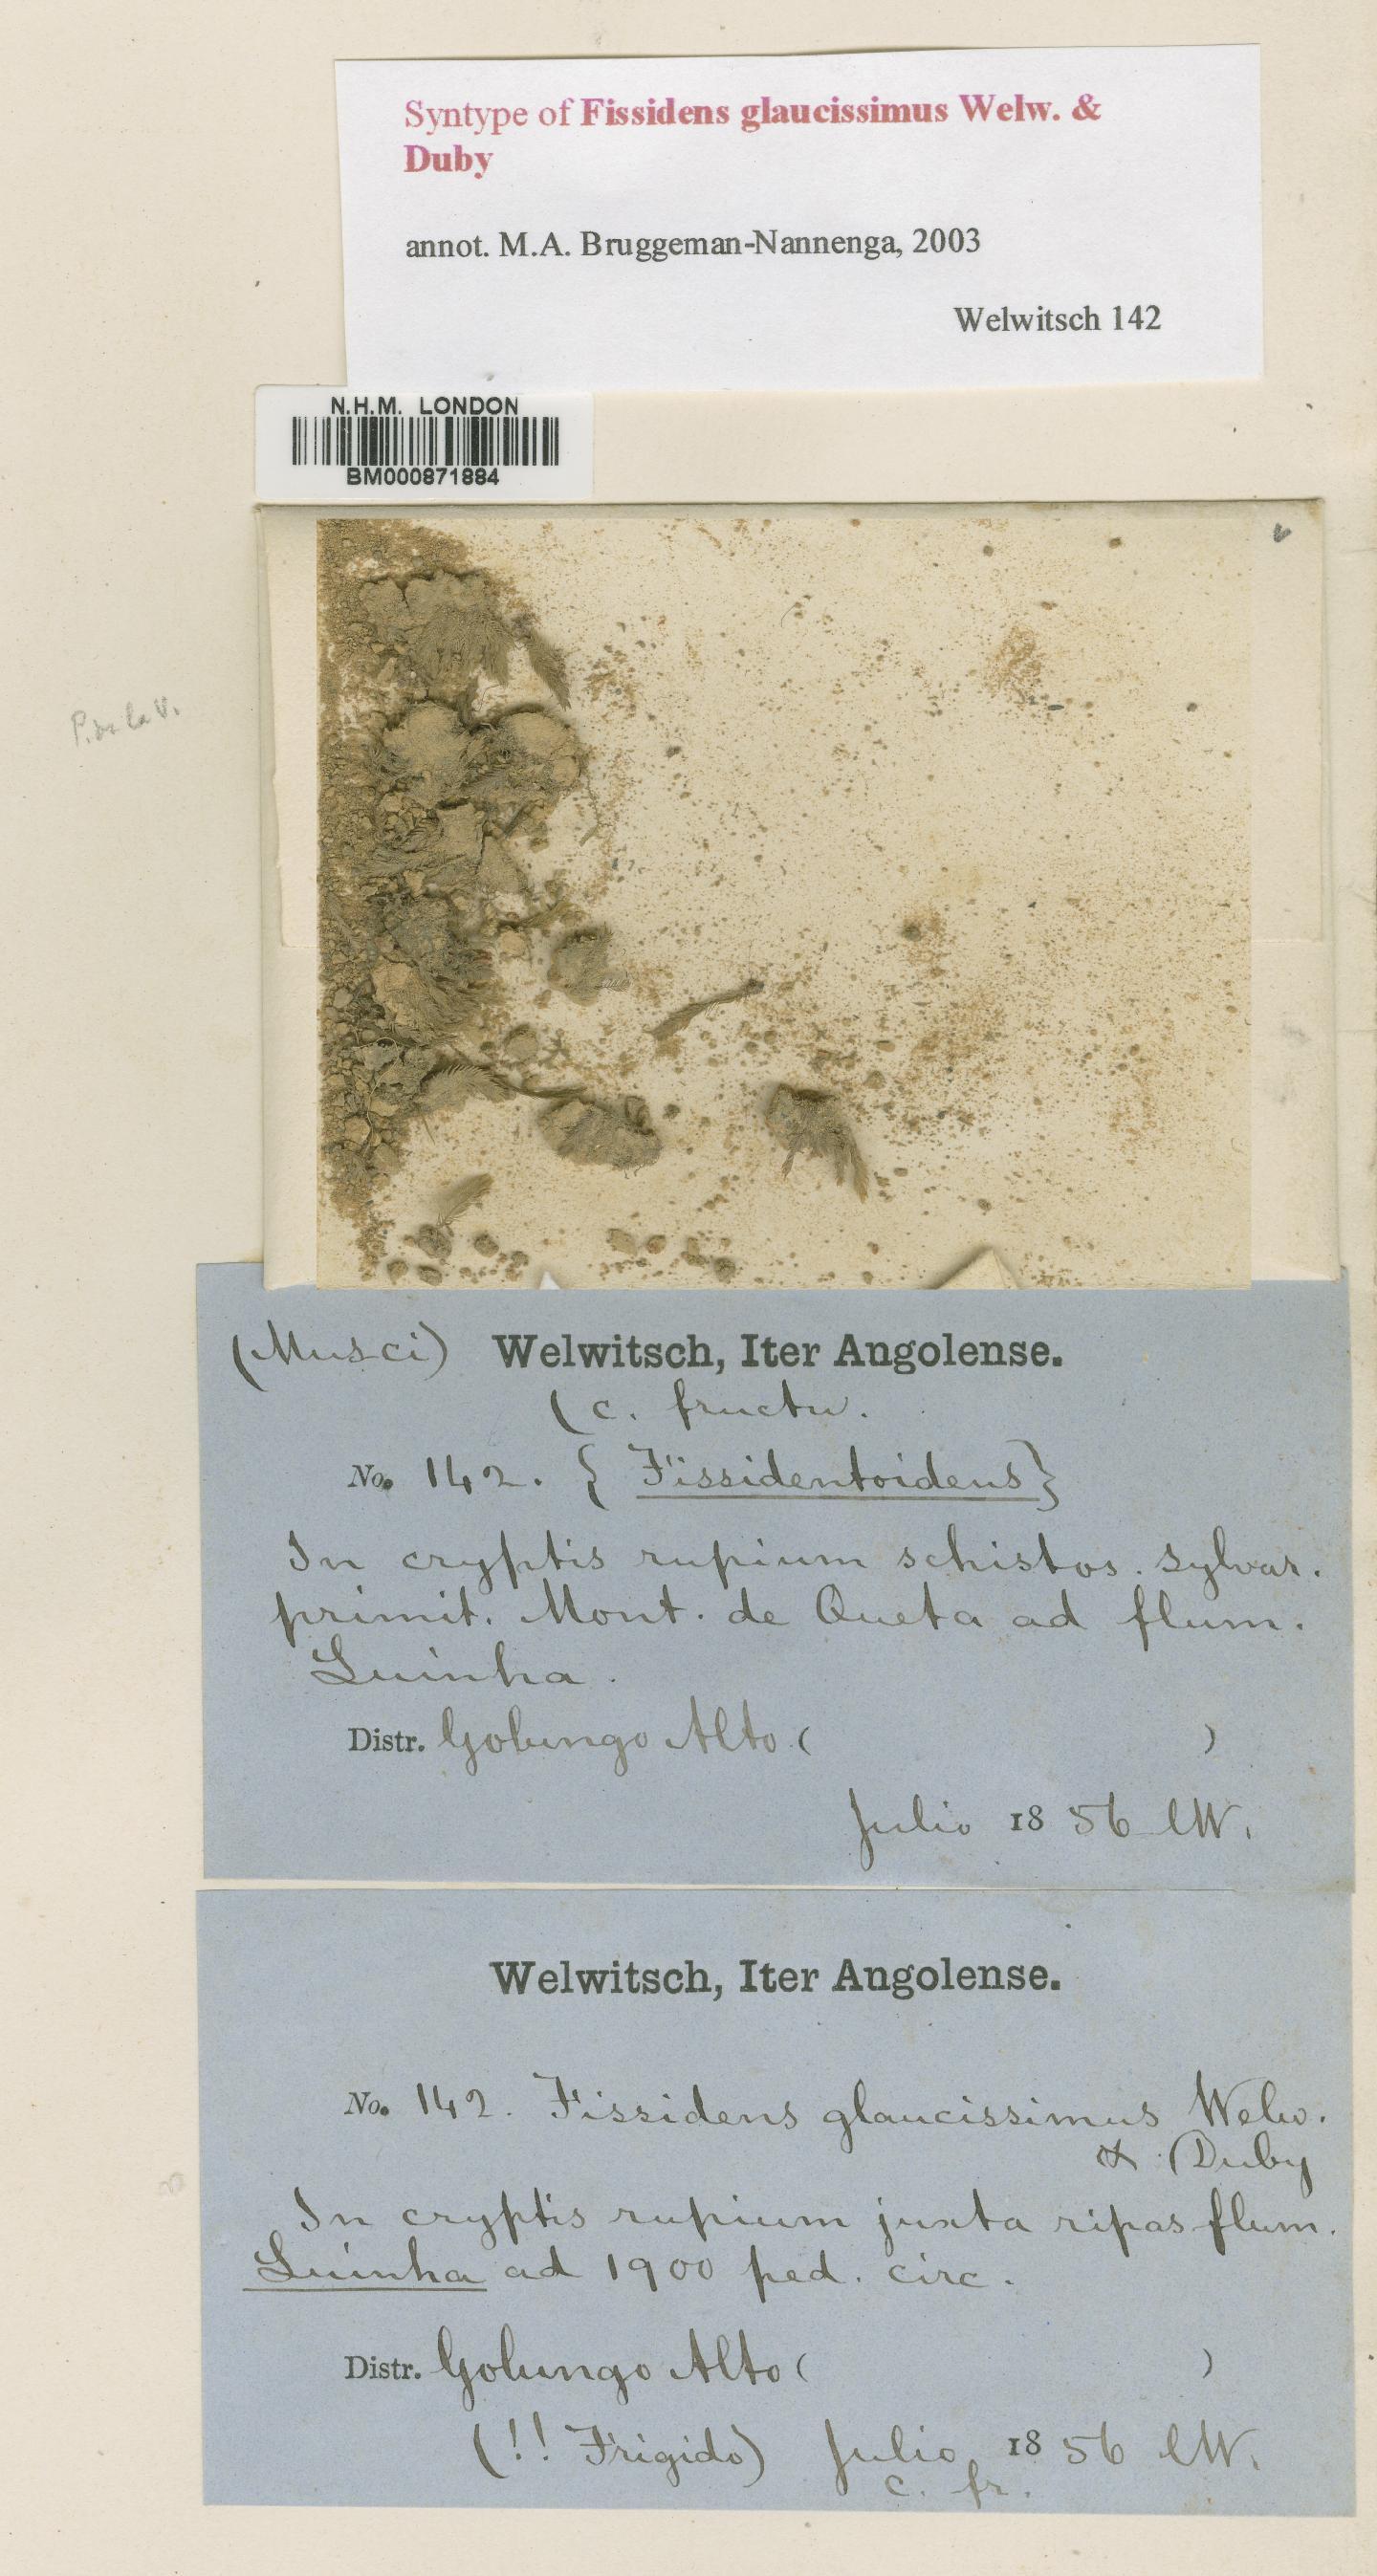 Syntype of Fissidens glaucissimus Welw. &
Duby
annot. M.A. Bruggeman-Nannenga, 2003
Welwitsch 142
N.H.M. LONDON
BM000871884
P. de la V.
(Musci) Welwitsch, Iter Angolense.
(c. fructu.
No. 142. { Fissidentoideus}
In cryptis rupium schistos. sylvar.
primit. Mont. de Queta ad flum.
Luinha.
Distr. Golungo Alto ( )
Julio 1856 lW.
Welwitsch, Iter Angolense.
No. 142. Fissidens glaucissimus Welw.
& Duby
In cryptis rupium juxta ripas flum.
Luinha ad 1900 ped. circ.
Distr. Golungo Alto ( )
(!! Frigido) Julio 1856 lW.
c. fr.